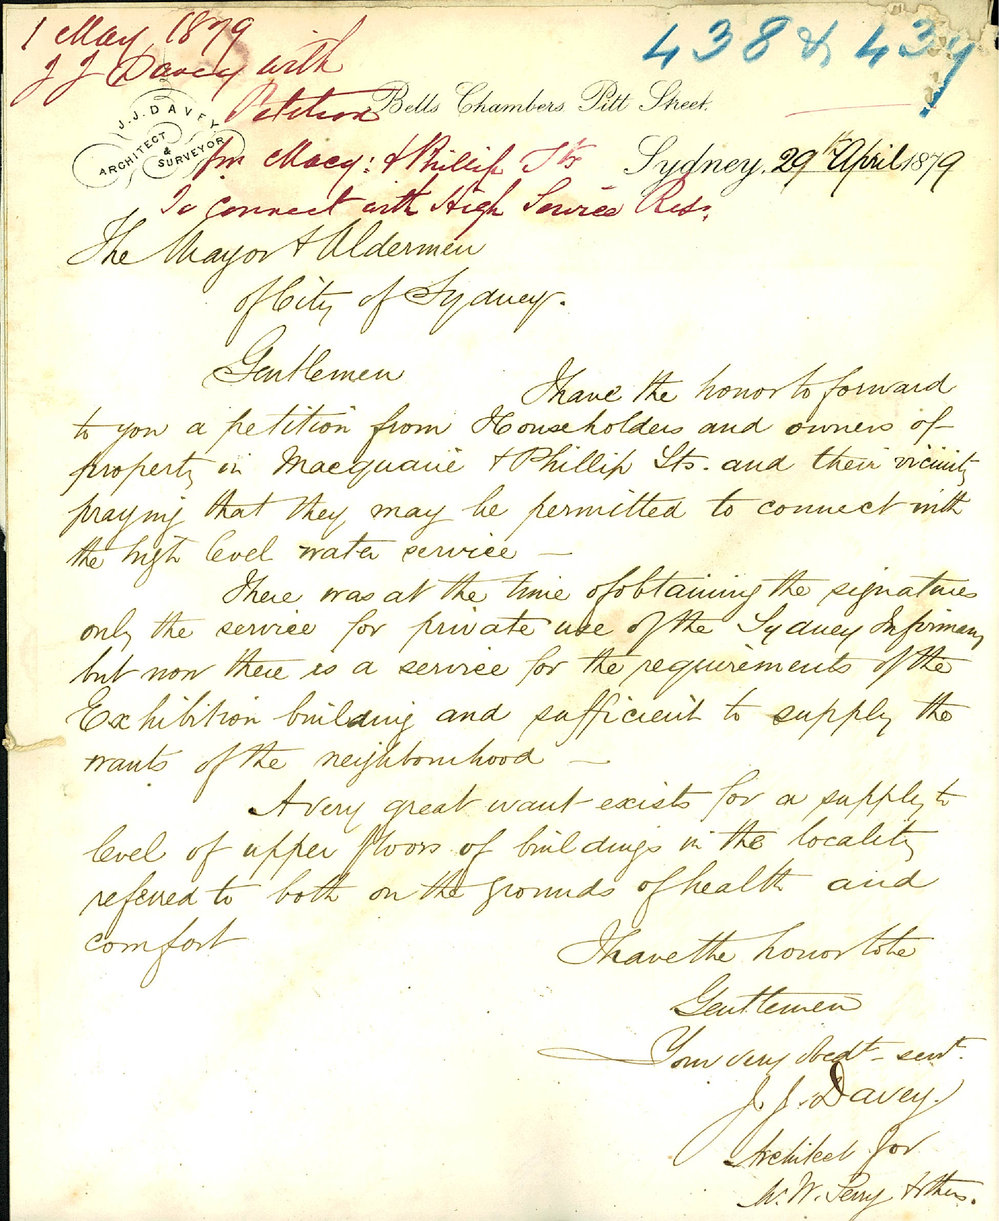 1 May 1879
J J Davey with
Petition
fm Macq: & Phillip Sts
To connect with High Service Res.
438 & 439
J. J. DAVEY
ARCHITECT
&
SURVEYOR
Bells Chambers Pitt Street.
Sydney, 29th April 1879
The Mayor & Aldermen
of City of Sydney.
Gentlemen
I have the honor to forward
to you a petition from Householders and owners of
property in Macquarie & Phillip Sts. and their vicinity
praying that they may be permitted to connect with
the high level water service —
There was at the time of obtaining the signatures
only the service for private use of the Sydney Infirmary
but now there is a service for the requirements of the
Exhibition building and sufficient to supply the
wants of the neighbourhood —
A very great want exists for a supply to
level of upper floors of buildings in the locality
referred to both on the grounds of health and
comfort
I have the honor to be
Gentlemen
Your very obedt. servt.
J. J. Davey.
Architect for
W. Perry & others.